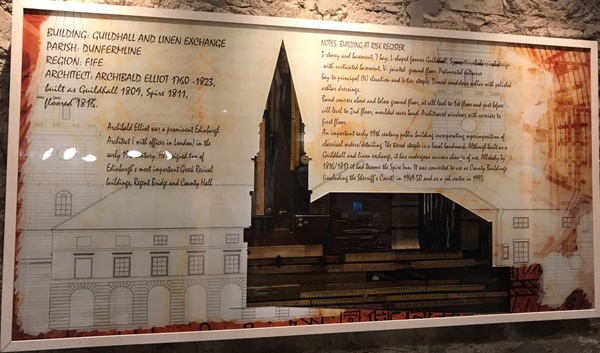 BUILDING: GUILDHALL AND LINEN EXCHANGE
PARISH: DUNFERMLINE
REGION: FIFE
ARCHITECT: ARCHIBALD ELLIOT 1760 -1823,
built as Guildhall 1809, Spire 1811,
floored 1816.
Archibald Elliot was a prominent Edinburgh
Architect ( with offices in London) in the
early 19th century. He designed two of
Edinburgh's most important Greek Revival
buildings, Regent Bridge and County Hall
NOTES: BUILDING AT RISK REGISTER
3 storey and basement, 7 bay; L-shaped former Guildhall. Symmetrical
with rusticated basement, V- jointed ground floor. Pedimented
bay to principal (N) elevation and 4-tier steeple. Droved sandstone ashlar with polished
ashlar dressings.
Band courses above and below ground floor, at sill level to 1st floor and just before
sill level to 2nd floor; moulded eaves band. Architraved windows with cornices to
first floor.
An important early 19th century public building incorporating superimposition of
classical orders/detailing. The tiered steeple is a local landmark. Although built as a
Guildhall and linen exchange, it has undergone various changes of use. Allready by
1816/1817 it had become the Spire Inn. It was converted to use as County Buildings
(including the Sherriff's Court) in 1849-50 and as a job centre in 1993.